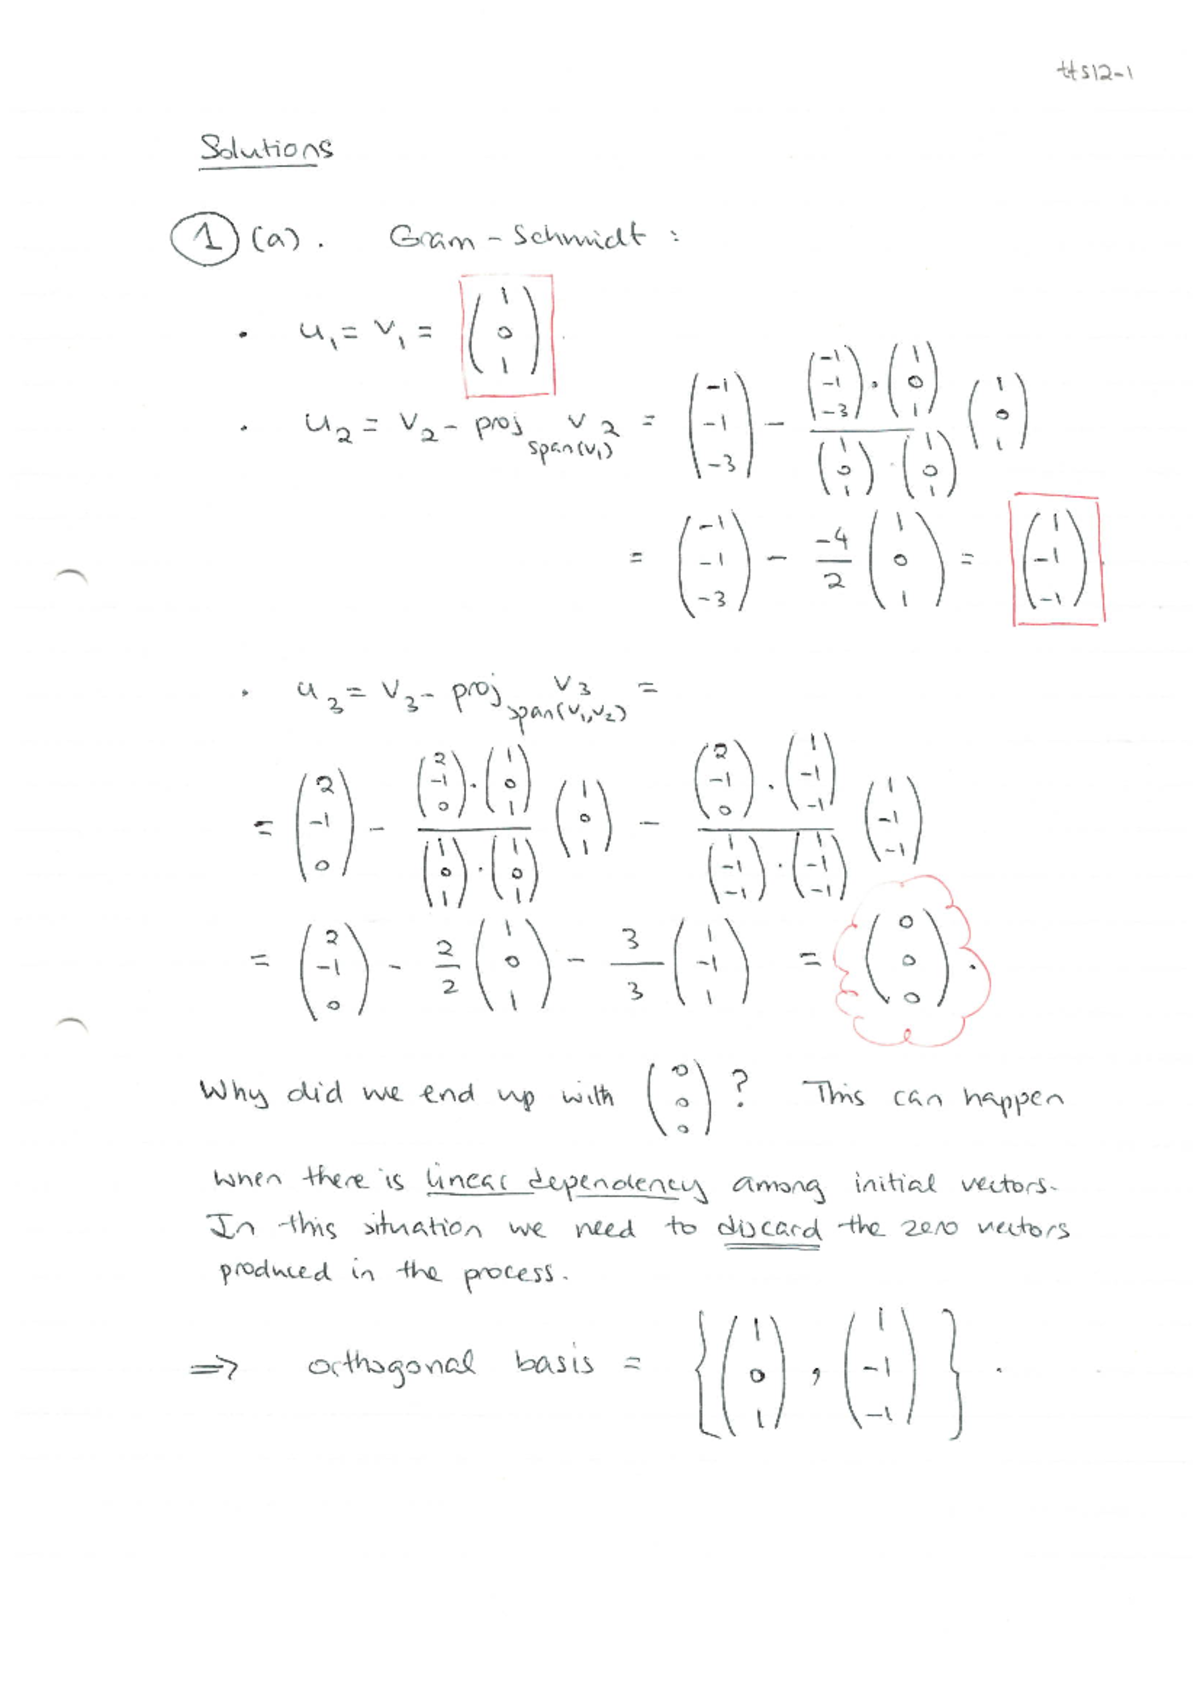 tts12-1
Solutions
1 (a). Gram - Schmidt :
• u₁ = v₁ = (1 0 1)
• u₂ = v₂ - proj span(v₁) v₂ = (-1 -1 -3) - ((-1 -1 -3) · (1 0 1)) / ((1 0 1) · (1 0 1)) (1 0 1)
= (-1 -1 -3) - -4/2 (1 0 1) = (1 -1 -1).
• u₃ = v₃ - proj span(v₁,v₂) v₃ =
= (2 -1 0) - ((2 -1 0) · (1 0 1)) / ((1 0 1) · (1 0 1)) (1 0 1) - ((2 -1 0) · (1 -1 -1)) / ((1 -1 -1) · (1 -1 -1)) (1 -1 -1)
= (2 -1 0) - 2/2 (1 0 1) - 3/3 (1 -1 1) = (0 0 0).
Why did we end up with (0 0 0) ? This can happen
when there is linear dependency among initial vectors.
In this situation we need to discard the zero vectors
produced in the process.
⇒ orthogonal basis = {(1 0 1) , (1 -1 -1)} .